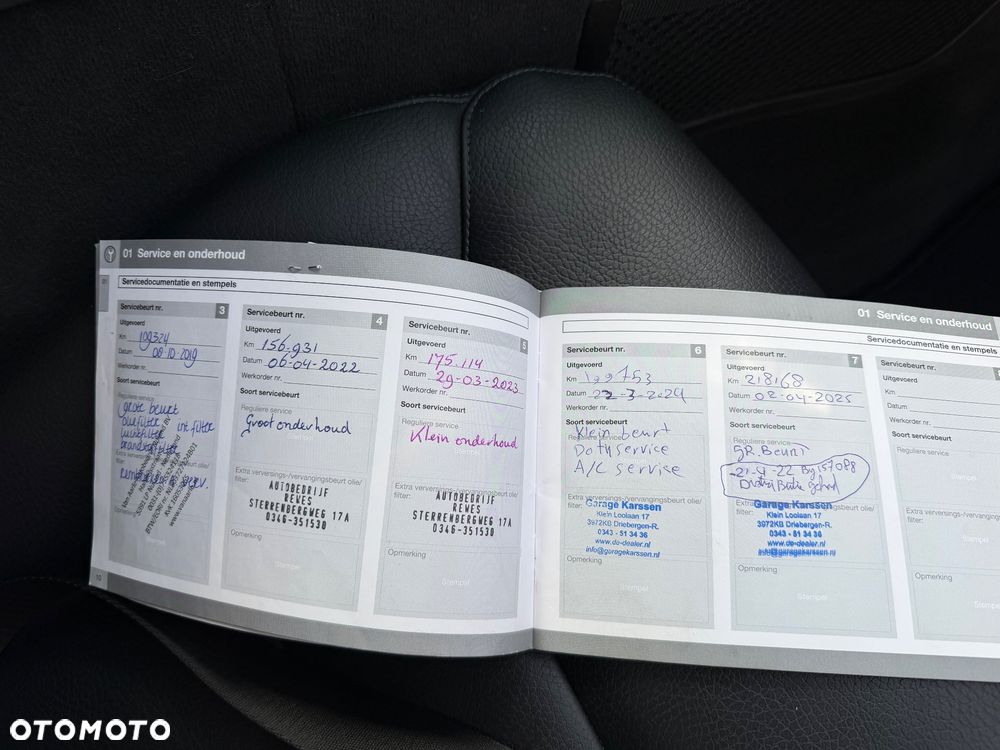 01 Service en onderhoud
Servicedocumentatie en stempels
Servicebeurt nr. 3
Uitgevoerd
Km 109324
Datum 08-10-2019
Werkorder nr.
Soort servicebeurt
Reguliere service
grote beurt
oliefilter int filter
luchtfilter
brandstoffilter
Extra verversings-/vervangingsbeurt olie/
filter:
Servicebeurt nr. 4
Uitgevoerd
Km 156.931
Datum 06-04-2022
Werkorder nr.
Soort servicebeurt
Reguliere service
Groot onderhoud
Stempel
Extra verversings-/vervangingsbeurt olie/
filter:
AUTOBEDRIJF
REWES
STERRENBERGWEG 17A
0346-351530
Opmerking
Stempel
10
Servicebeurt nr. 5
Uitgevoerd
Km 175.114
Datum 29-03-2023
Werkorder nr.
Soort servicebeurt
Reguliere service
Klein onderhoud
Extra verversings-/vervangingsbeurt olie/
filter:
AUTOBEDRIJF
REWES
STERRENBERGWEG 17A
0346-351530
Opmerking
Stempel
01 Service en onderhoud
Servicedocumentatie en stempels
Servicebeurt nr. 6
Uitgevoerd
Km 199753
Datum 22-3-2024
Werkorder nr.
Soort servicebeurt
Reguliere service
Klein beurt
A/C service
Extra verversings-/vervangingsbeurt olie/
filter:
Garage Karssen
Klein Loolaan 17
3972KB Driebergen-R.
0343 - 51 34 36
www.de-dealer.nl
info@garagekarssen.nl
Opmerking
Stempel
Servicebeurt nr. 7
Uitgevoerd
Km 218168
Datum 02-04-2025
Werkorder nr.
Soort servicebeurt
Reguliere service
GR. Beurt
21-4-22 By 157098
Distributie gehad
Extra verversings-/vervangingsbeurt olie/
filter:
Garage Karssen
Klein Loolaan 17
3972KB Driebergen-R.
0343 - 51 34 36
www.de-dealer.nl
info@garagekarssen.nl
Opmerking
Stempel
Servicebeurt nr.
Uitgevoerd
Km
Datum
Werkorder nr.
Soort servicebeurt
Reguliere service
Extra verversings-/
filter:
Opmerking
OTOMOTO